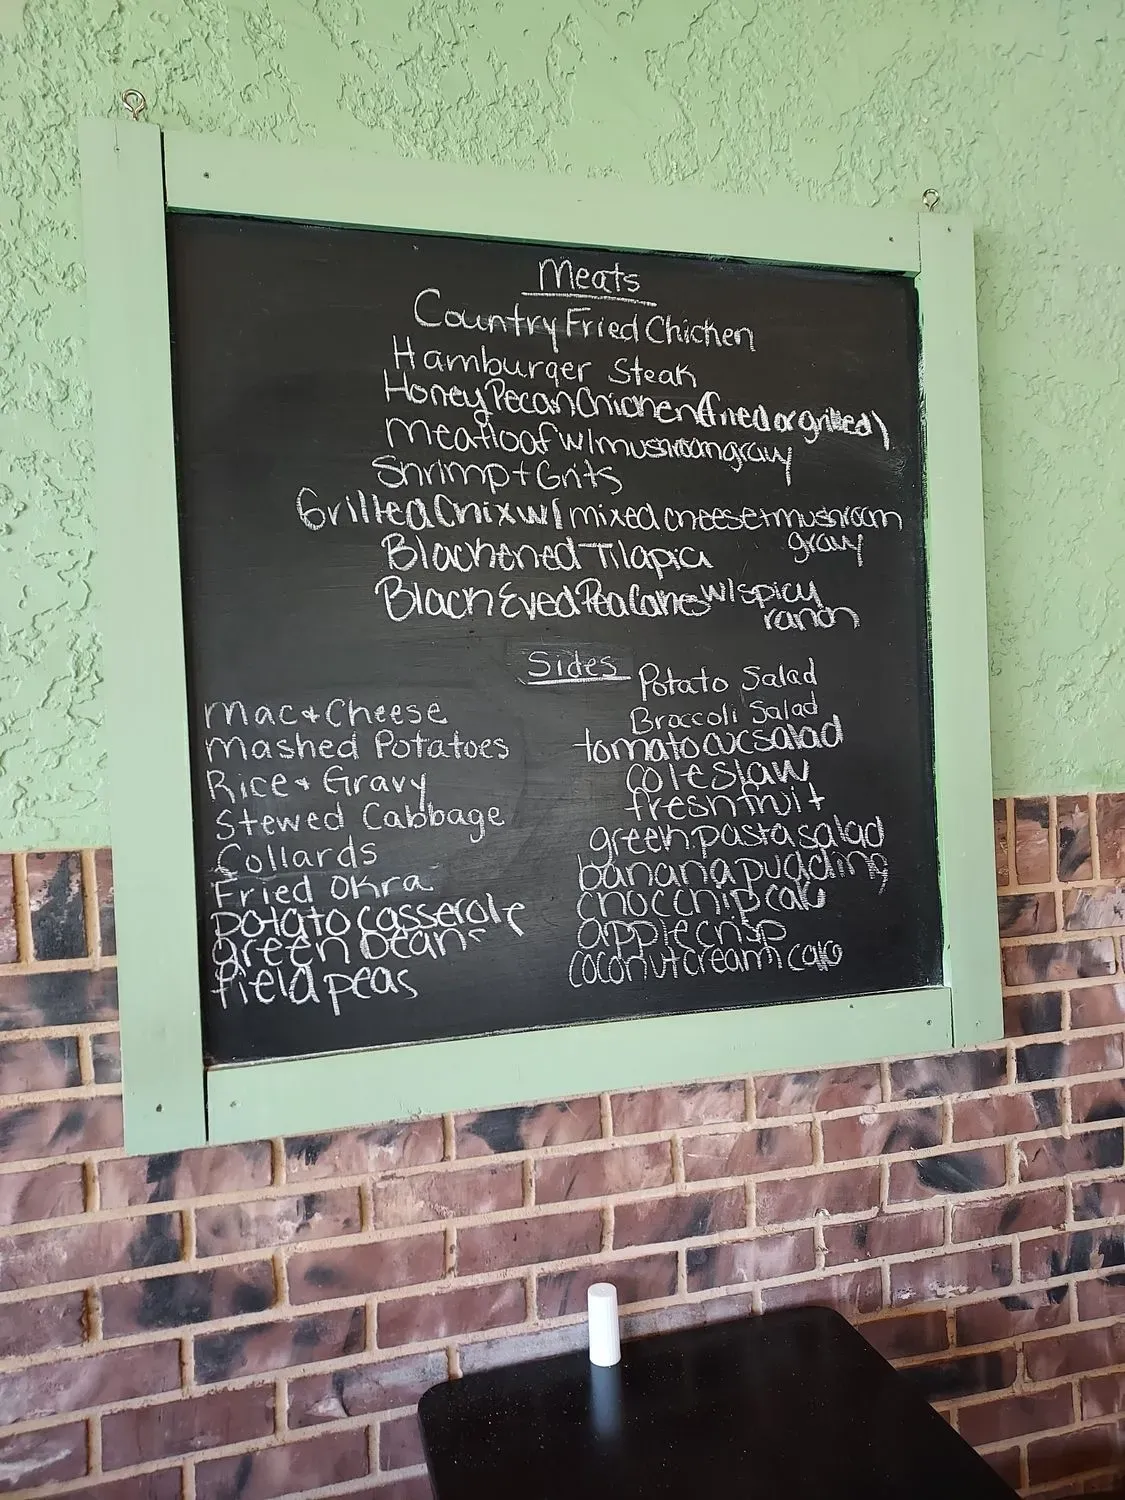 Meats
Country Fried Chicken
Hamburger Steak
Honey Pecan Chicken (fried or grilled)
Meatloaf w/ mushroom gravy
Shrimp + Grits
Grilled Chix w/ mixed cheese + mushroom
gravy
Blackened Tilapia
Black Eyed Pea Cakes w/ spicy
ranch
Sides
Mac & Cheese
Mashed Potatoes
Rice & Gravy
Stewed Cabbage
Collards
Fried Okra
potato casserole
green beans
field peas
Potato Salad
Broccoli Salad
tomato cuc salad
coleslaw
fresh fruit
green pasta salad
banana pudding
choc chip cake
apple crisp
coconut cream cake